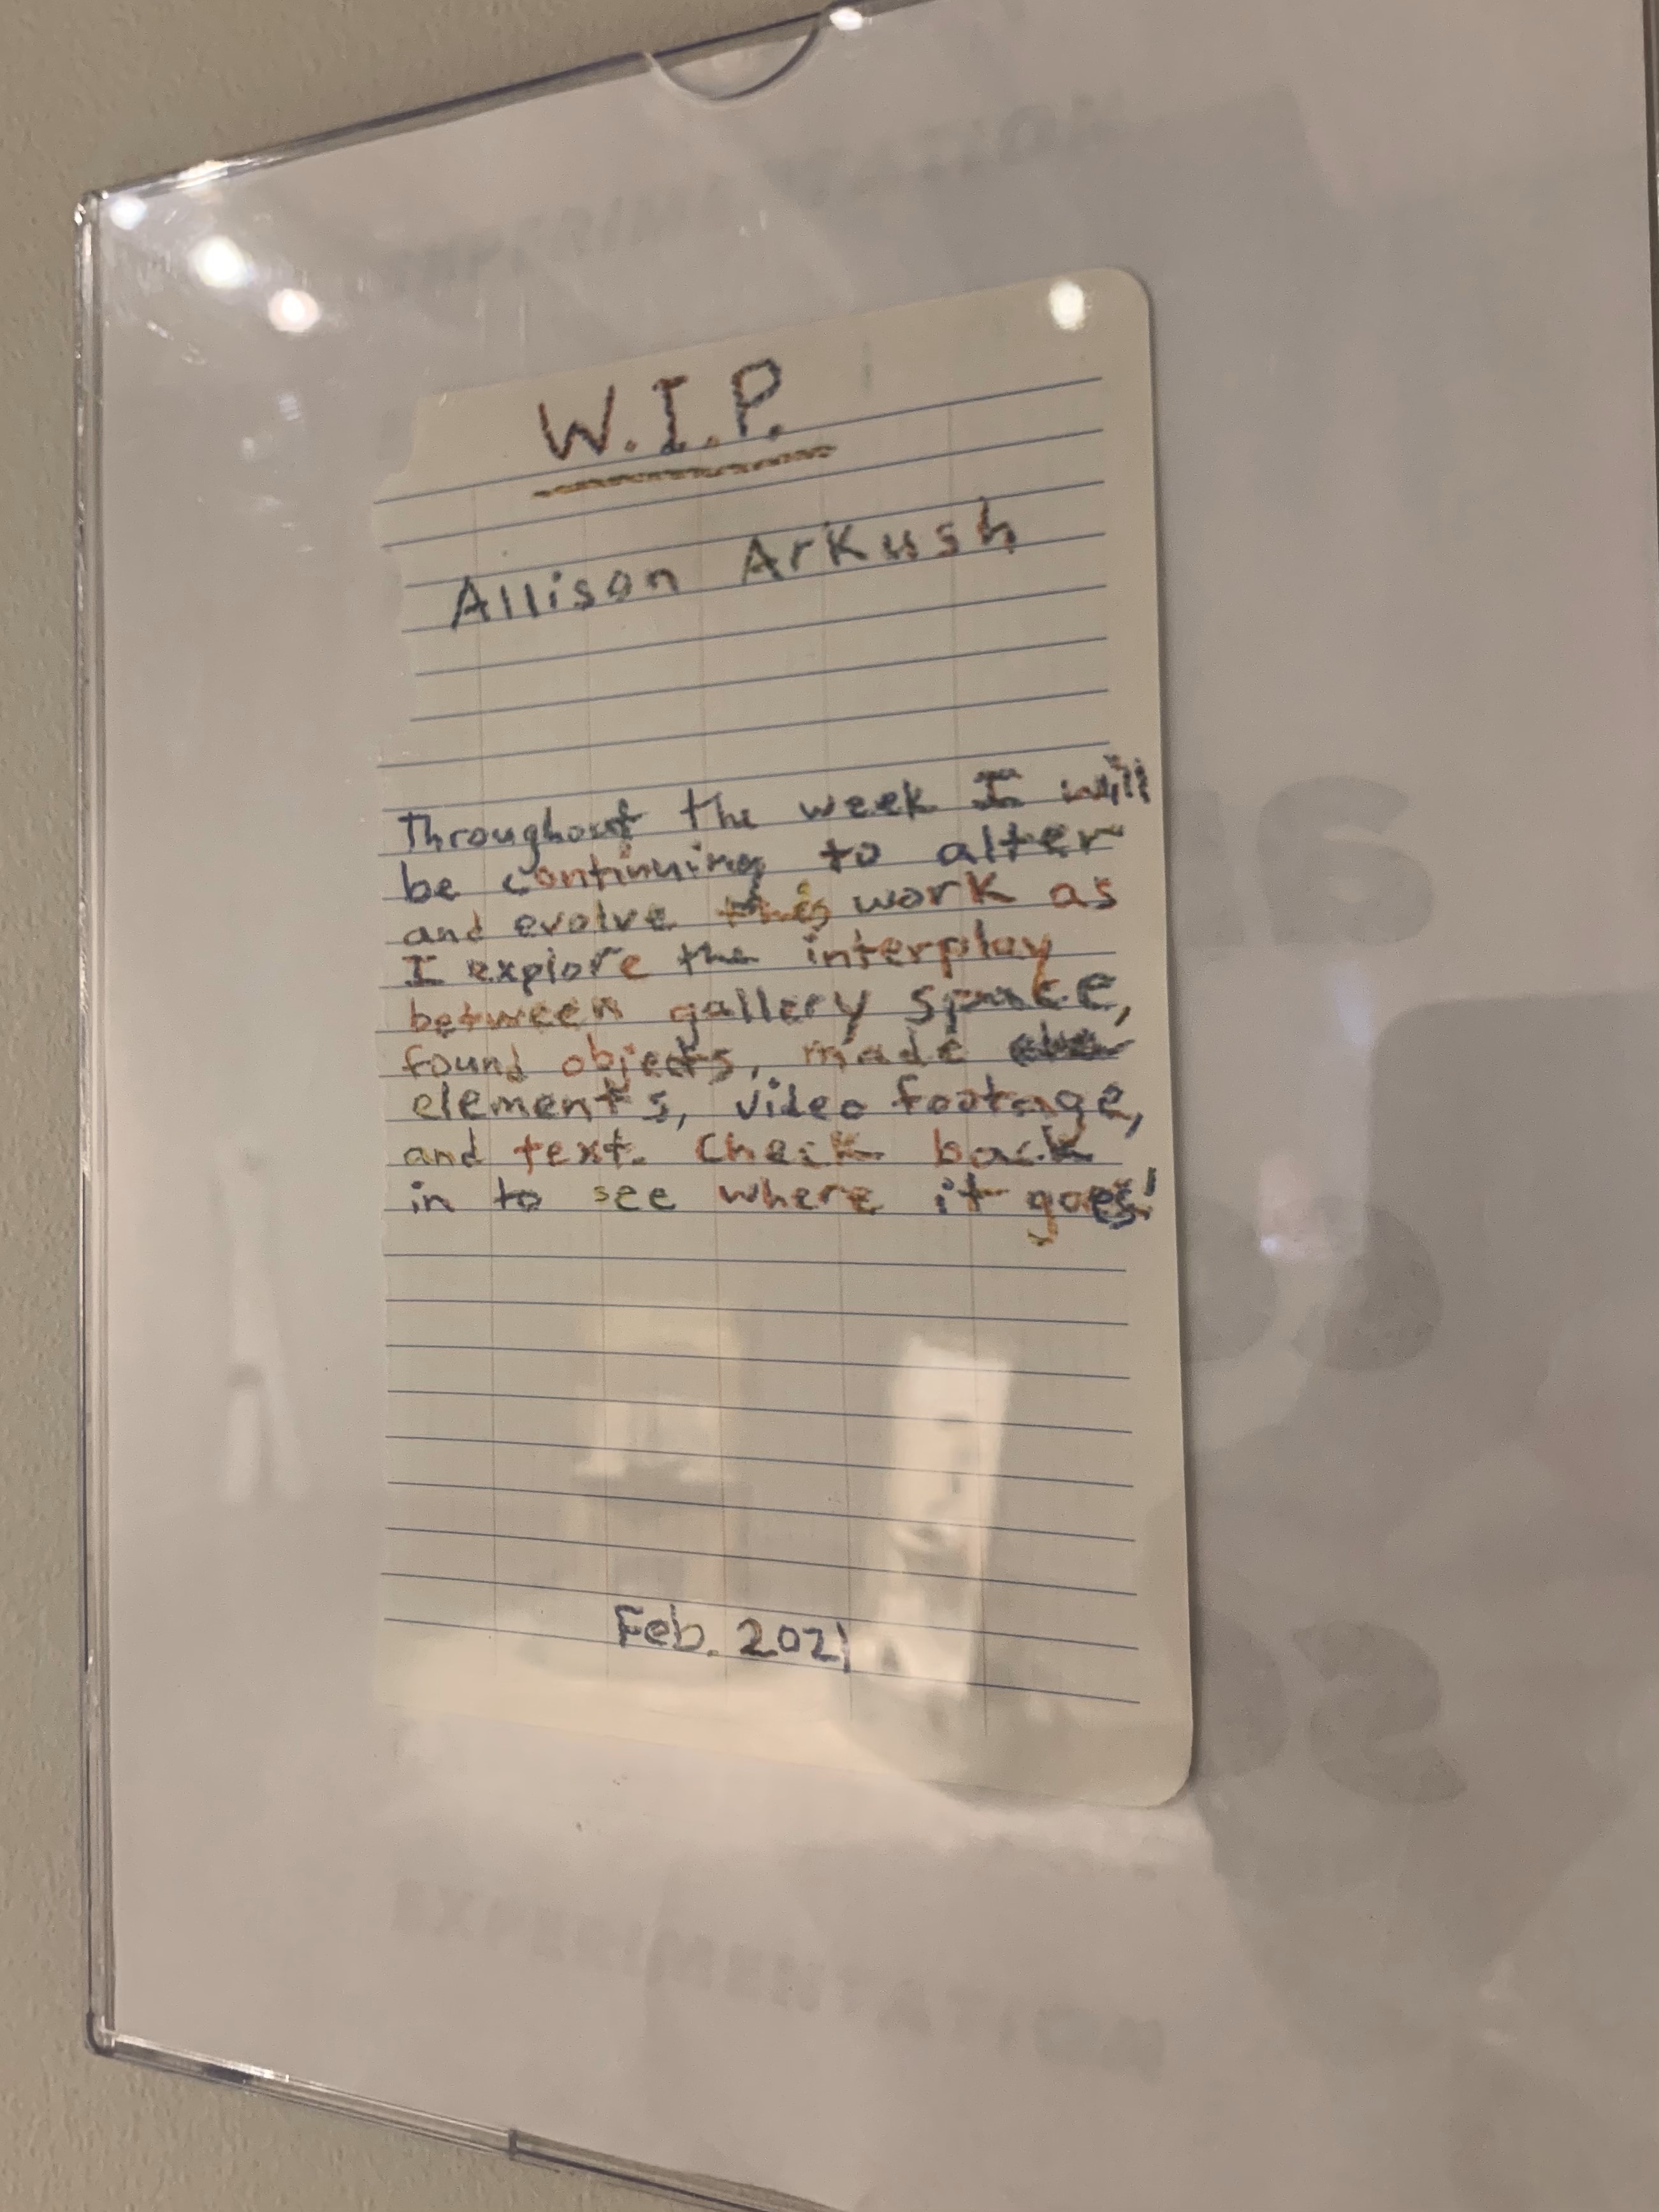 W.I.P.
Allison Arkush
Throughout the week I will
be continuing to alter
and evolve this work as
I explore the interplay
between gallery space,
found objects, made
elements, video footage,
and text. Check back
in to see where it goes!
Feb. 2021